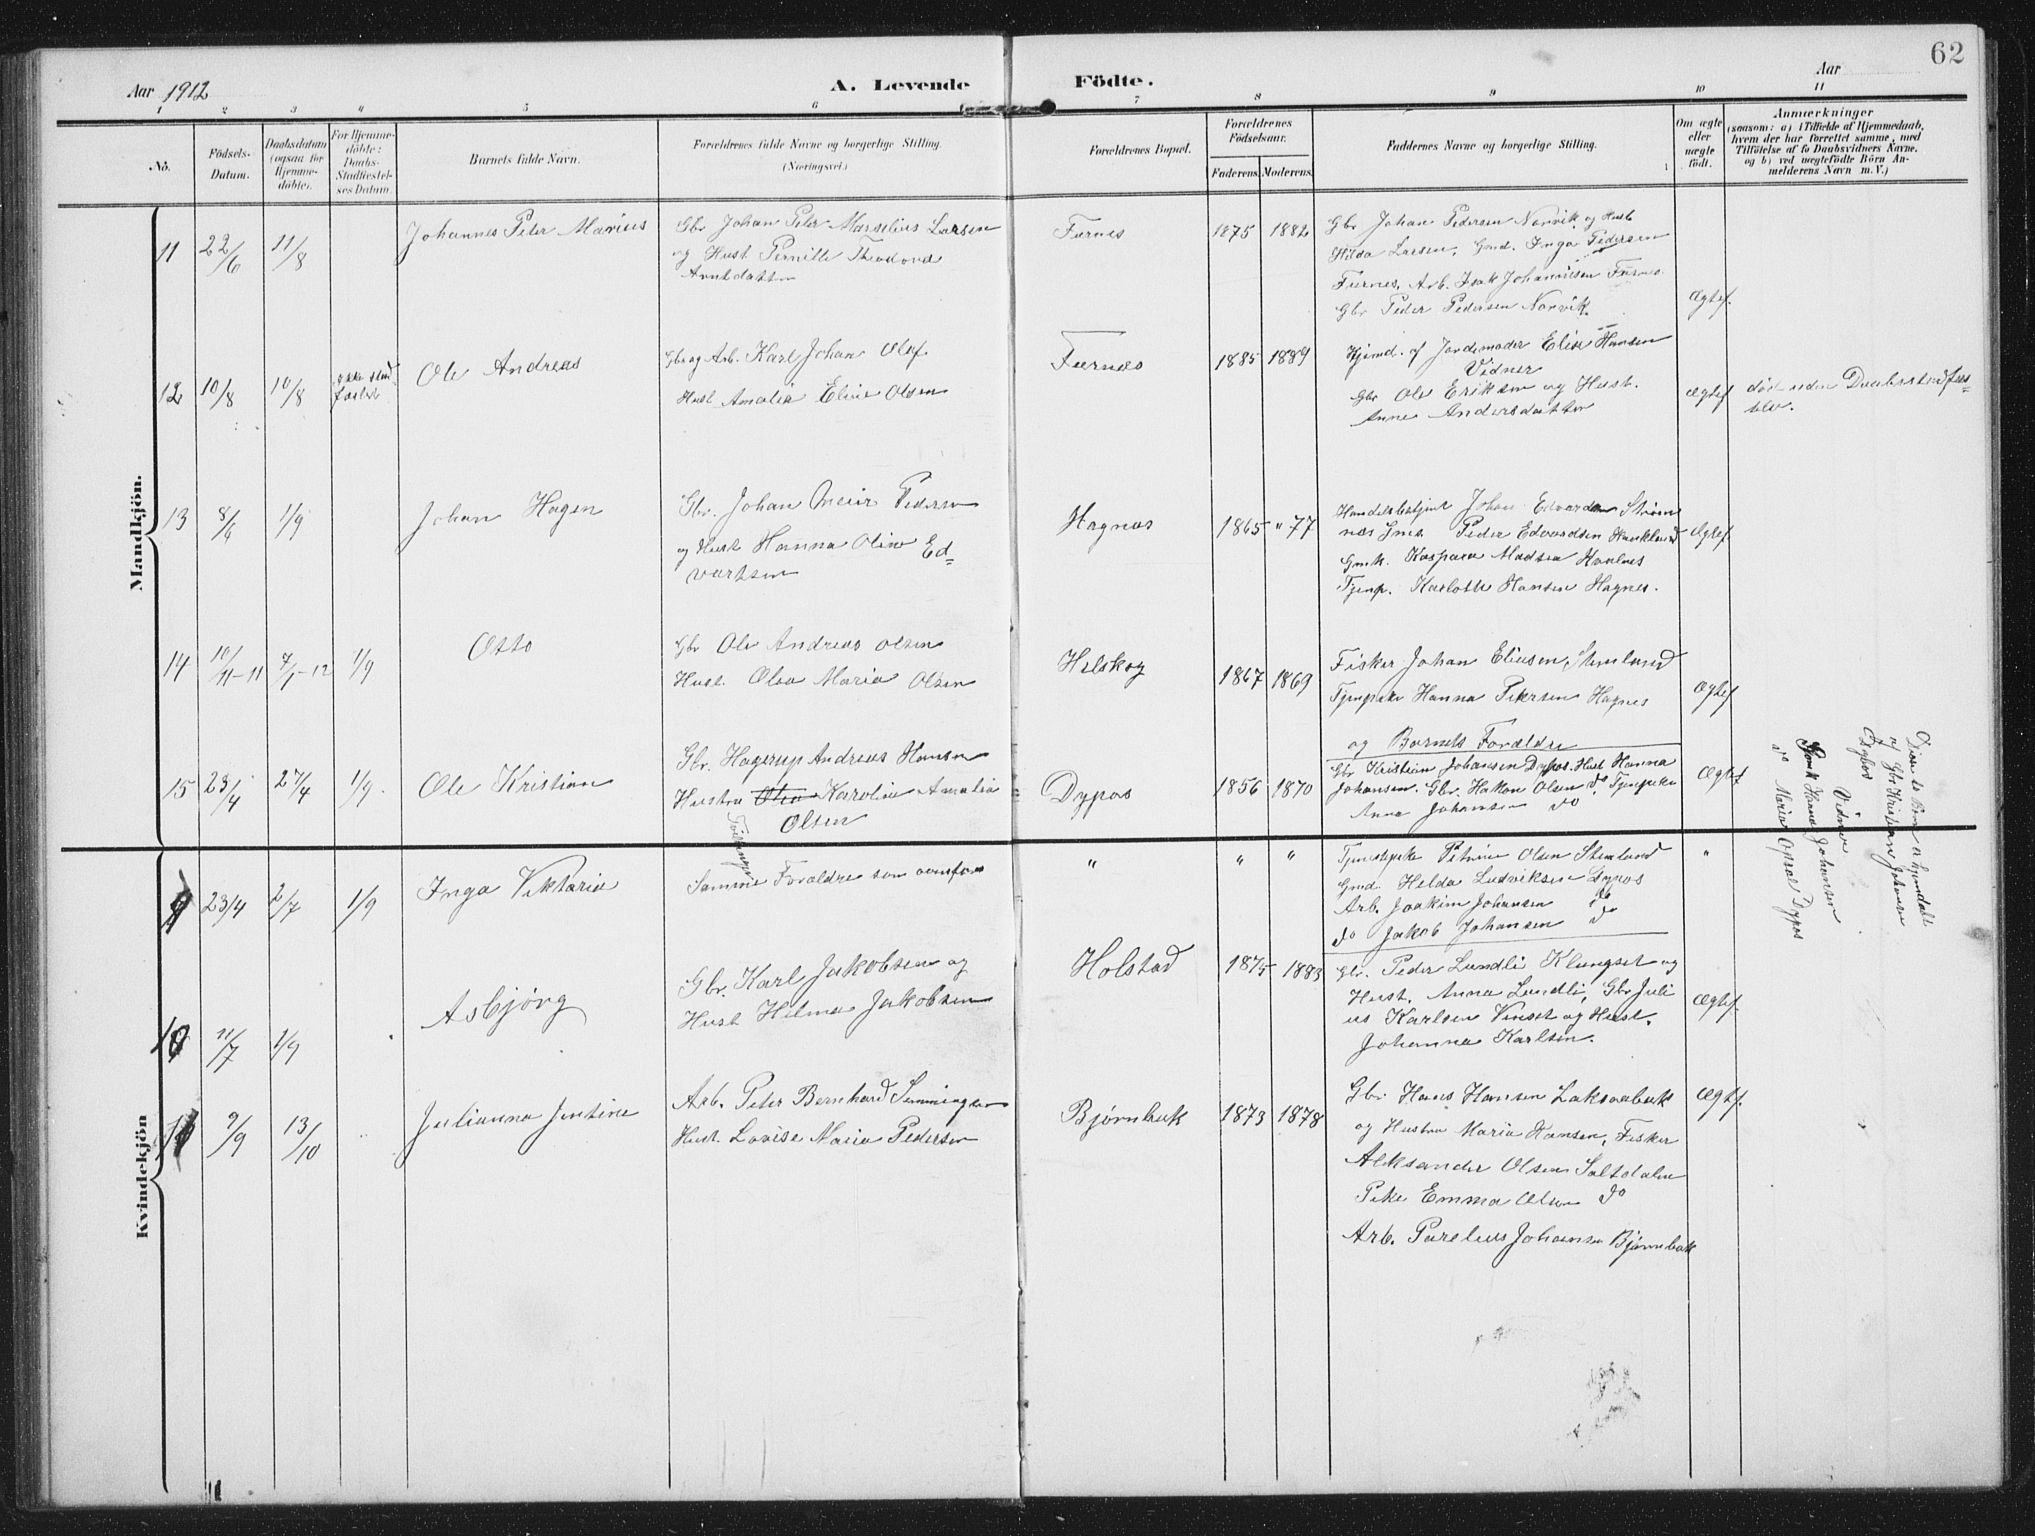 62
Aar 1912
A. Levende Födte.
Aar
1 2 3 4 5 6 7 8 9 10 11
No.
Födsels-Datum.
Daabsdatum (ogsaa for Hjemme-döbte).
For Hjemme-döbte: Daabs-Stadfæstelses Datum.
Barnets fulde Navn.
Forældrenes fulde Navne og borgerlige Stilling. (Næringsvei.)
Forældrenes Bopæl.
Forældrenes Födselsaar.
Faderens. Moderens.
Faddernes Navne og borgerlige Stilling.
Om ægte eller uægte födt.
Anmærkninger
(saasom: a) i Tilfælde af Hjemmedaab, hvem der har forrettet samme, med Tilföielse af to Daabsvidners Navne. og b) ved uægtefödte Börn Anmelderens Navn m. V.)
Mandkjön.
11 22/6 11/8 Johannes Peter Marius
Gbr Johan Peter Marselius Larsen
og Hust Pernille Theodora
Arntdatter
Furnes 1875 1882
Gbr Johan Pedersen Norvik og Hust
Hilda Larsen, Gmd. Inga Pedersen
Furnes, Arb. Isak Johannesen Furnes
Gbr Peder Pedersen Norvik.
Ægtef
12 10/8 10/8 ikke stadfæstet Ole Andreas
Gbr og Arb. Karl Johan Olaf
Hust Amalia Eline Olsen
Furnes 1885 1889
Hjemd. af Jordemoder Elise Hansen
Vidner
Gbr Ole Eriksen og Hust.
Anne Andersdatter
Ægtef
død uden Daabsstadfæs=
telse.
13 8/6 1/9 Johan Hagen
Gbr. Johan Meier Pedersen
og Hust Hanna Oline Ed=
vartsen
Hagnes 1865 " 77
Handelsbetjent Johan Edvardsen Strøm
nes Gmd. Peder Edvardsen
Gmk. Kaspara Madsen
Tjenp. Karlotte Hansen Hagnes.
Ægtef
14 10/11-11 7/1-12 1/9 Otto
Gbr Ole Andreas Olsen
Hust. Olea Maria Olsen
Helskog 1867 1869
Fisker Johan Eliesen, Stenland
Tjenpike Hanna Petersen Hagnes
og Barnets Forældre
Ægtef
15 23/4 27/4 1/9 Ole Kristian
Gbr. Hagerup Andreas Hansen
Hustru Olea Karoline Amalia
Olsen
Tvillinger
Dypos 1856 1870
Gbr Kristian Johansen Dypos. Hust Hanna
Johansen. Gbr. Hakon Olsen do Tjenpike
Anna Johansen do
Ægtef
Disse to Børn er hjemdøbt
af Gbr Kristian Johansen
Dypos
Vidner
Hans Johansen
do Maria Opsal Dypos
Kvindekjön
9 23/4 2/7 1/9 Inga Viktoria
Samme Forældre som ovenfor
" " "
Tjenestepike Petrine Olsen Stenland
Gmd. Hilda Ludviksen Dypos
Arb. Joakim Johansen do
do Jakob Johansen do
"
10 11/7 1/9 Asbjørg
Gbr. Karl Jakobsen og
Hust Helma Jakobsen
Holstad 1875 1883
Gbr. Peder Lundli Klungset og
Hust. Anna Lundli, Gbr Juli
us Karlsen Vinset og Hust.
Johanna Karlsen.
Ægtef.
11 9/9 13/10 Julianna Jentine
Arb. Peter Bernhard Semmingsen
Hust. Lovise Maria Pedersen
Bjørnbak 1873 1878
Gbr Hans Hansen Laksaabak
og Hustru Maria Hansen, Fisker
Aleksander Olsen Saltdalen
Pike Emma Olsen do
Arb. Parelius Johansen Bjørnbak
Ægtf.